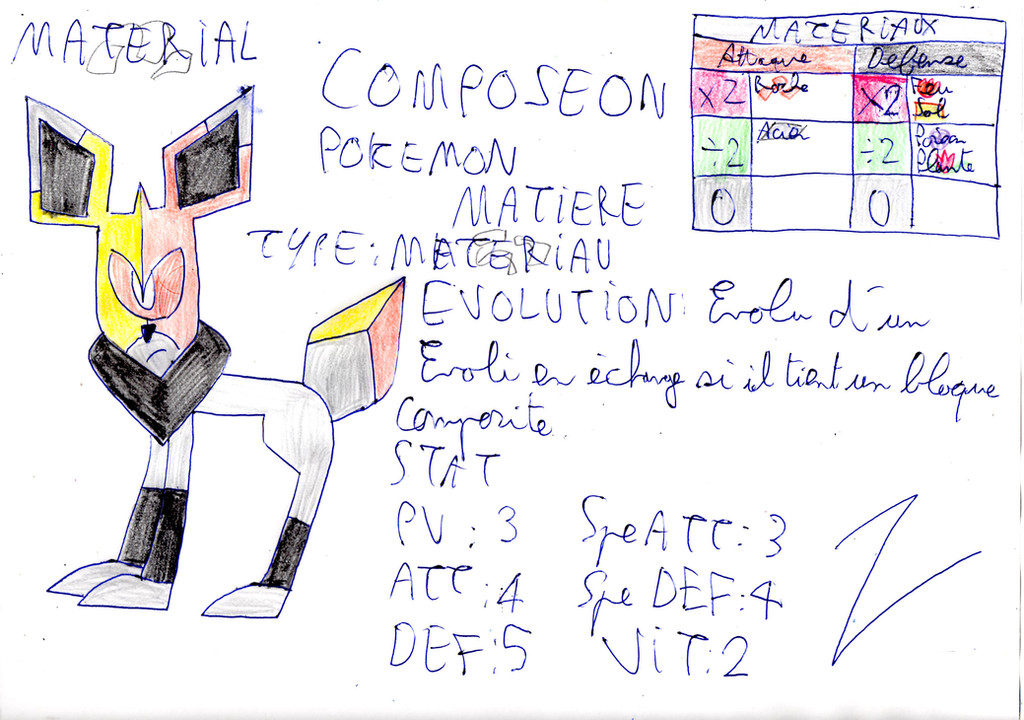 MATERIAL
COMPOSEON
POKEMON
MATIERE
TYPE: MATERIAU
EVOLUTION: Evolu d'un
Evoli en échange si il tient un bloque
Composite
STAT
PV: 3 Spe ATT: 3
ATT: 4 Spe DEF: 4
DEF: 5 ViT: 2
MATERIAUX
Attaque Défense
x2 Roche x2 Feu
Sol
÷2 Acier ÷2 Poison
Plante
0 0